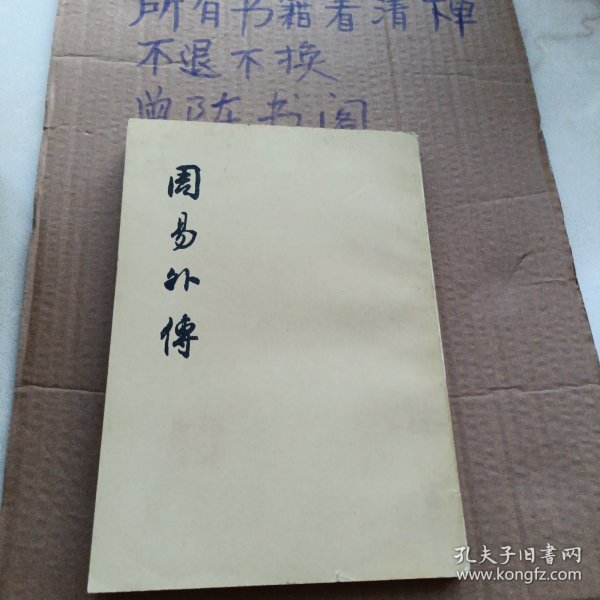 所有书籍看清下单
不退不换
曾陈书阁
周易外傳
孔夫子旧書网
www.kongfz.com